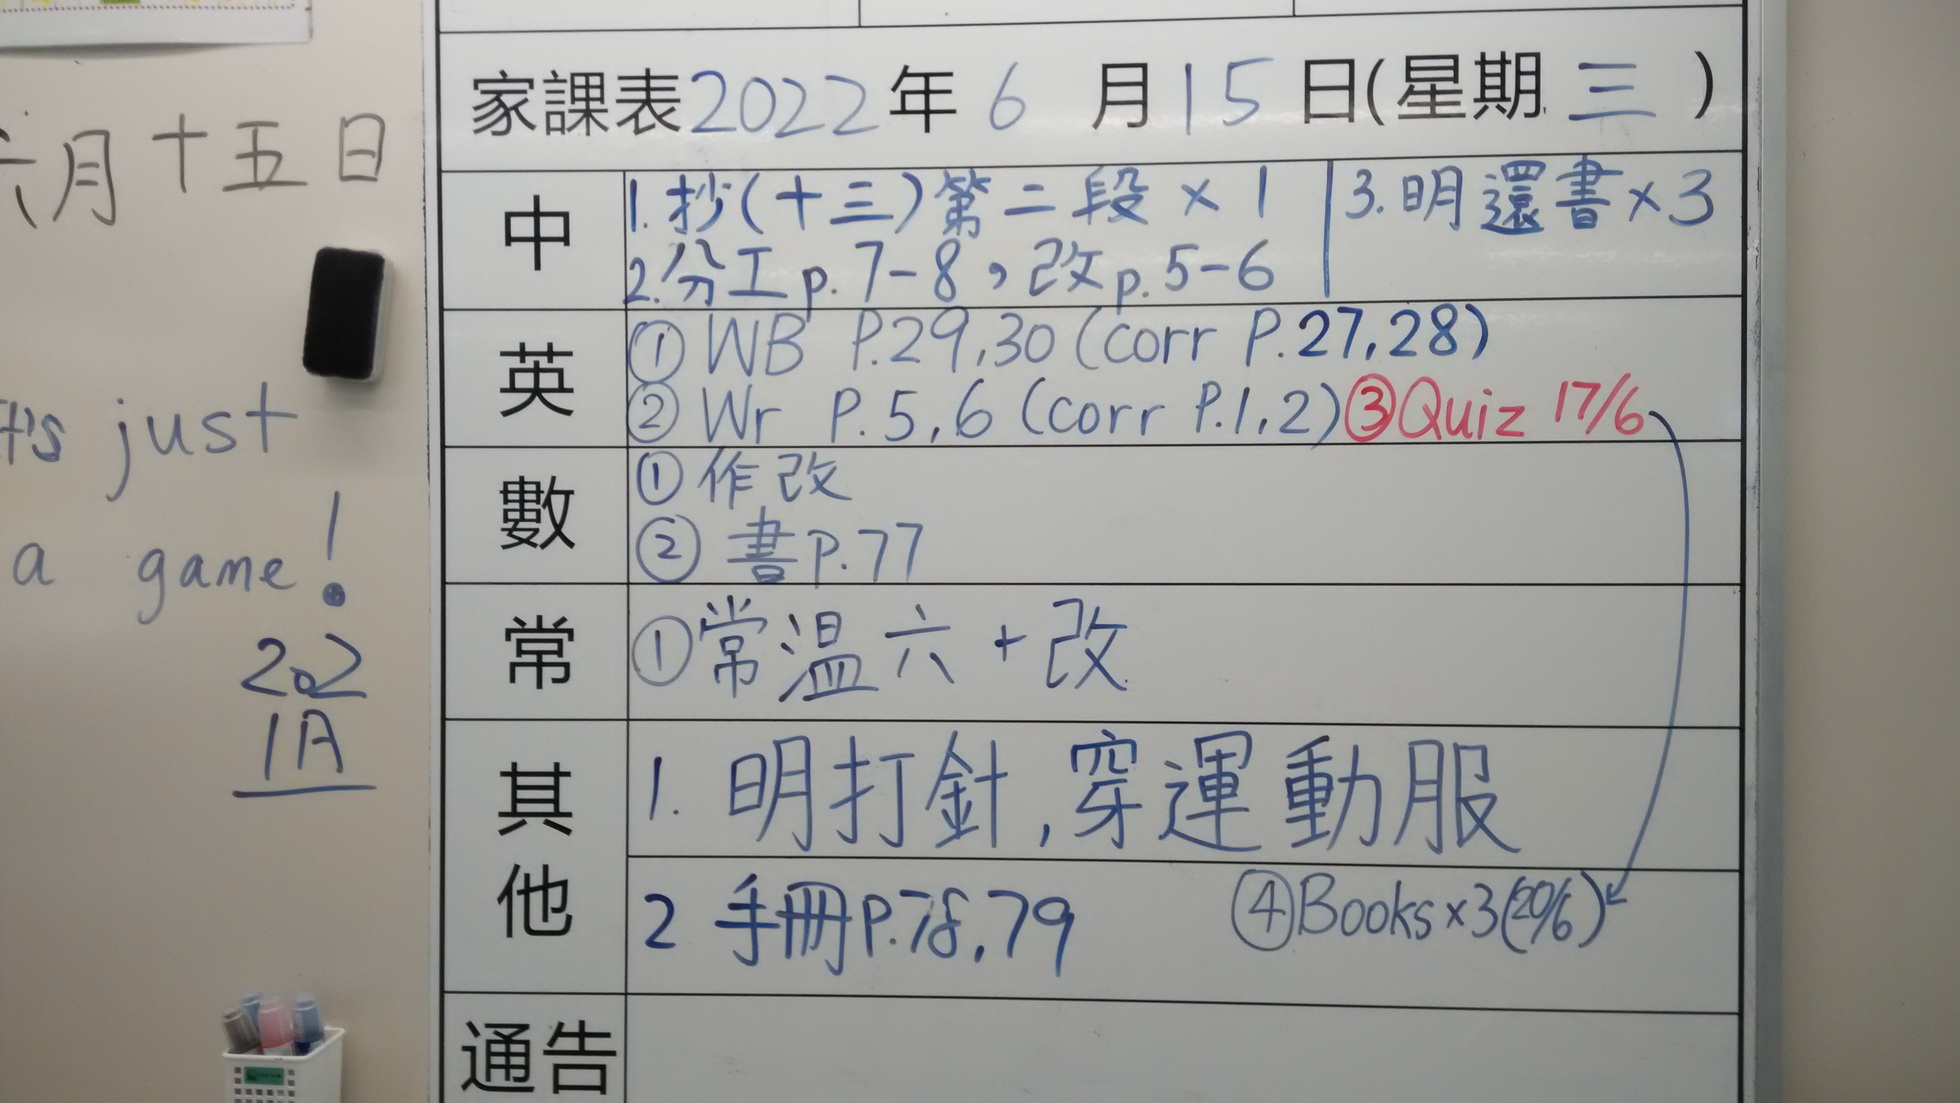 六月十五日
It's just
a game!
202
1A
家課表2022年6月15日(星期三)
中
1.抄(十三)第二段×1
2.分工p.7-8,改p.5-6
3.明還書×3
英
① WB P.29,30 (corr P.27,28)
② Wr P.5,6 (corr P.1,2) ③Quiz 17/6
數
①作改
②書P.77
常
①常溫六+改
其他
1. 明打針,穿運動服
2 手冊P.78,79
④Books×3(20/6)
通告